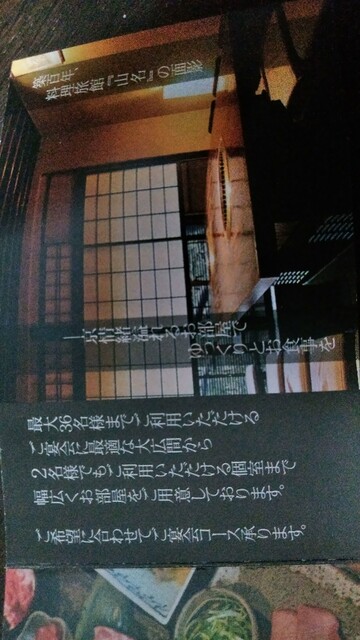 築百年、
料理旅館『山名』の面影
京情緒溢れるお部屋で
ゆっくりとお食事を
最大36名様までご利用いただける
ご宴会に最適な大広間から
2名様でもご利用いただける個室まで
幅広くお部屋をご用意しております。
ご希望に合わせてご宴会コース承ります。